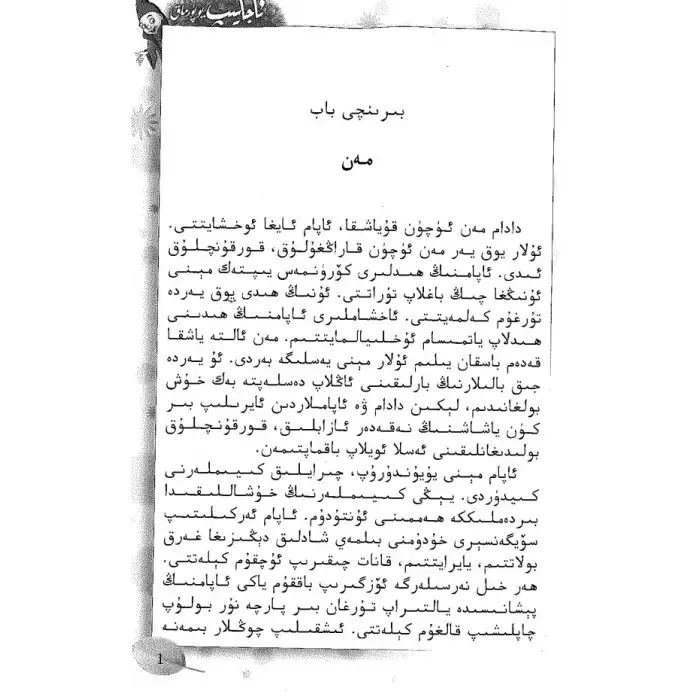 ئاجايىپ يوپۇرماق
بىرىنچى باب
مەن
دادام مەن ئۈچۈن قۇياشقا، ئاپام ئايغا ئوخشايتتى.
ئۇلار يوق يەر مەن ئۈچۈن قاراڭغۇلۇق، قورقۇنچلۇق
ئىدى. ئاپامنىڭ ھىدلىرى كۆرۈنمەس يىپتەك مېنى
ئۇنىڭغا چىڭ باغلاپ تۇراتتى. ئۇنىڭ ھىدى يوق يەردە
تۇرغۇم كەلمەيتتى. ئاخشاملىرى ئاپامنىڭ ھىدىنى
ھىدلاپ ياتمىسام ئۇخلىيالمايتتىم. مەن ئالتە ياشقا
قەدەم باسقان يىلىم ئۇلار مېنى يەسلىگە بەردى. ئۇ يەردە
جىق بالىلارنىڭ بارلىقىنى ئاڭلاپ دەسلەپتە بەك خۇش
بولغانىدىم، لېكىن دادام ۋە ئاپاملاردىن ئايرىلىپ بىر
كۈن ياشاشنىڭ نەقەدەر ئازابلىق، قورقۇنچلۇق
بولىدىغانلىقىنى ئەسلا ئويلاپ باقماپتىمەن.
ئاپام مېنى يۇيۇندۇرۇپ، چىرايلىق كىيىملەرنى
كىيدۈردى. يېڭى كىيىملەرنىڭ خۇشاللىقىدا
بىردەملىككە ھەممىنى ئۇنتۇدۇم. ئاپام ئەركىلىتىپ
سۆيگەنسېرى خۇدۇمنى بىلمەي شادلىق دېڭىزىغا غەرق
بولاتتىم، يايرايتتىم، قانات چىقىرىپ ئۇچقۇم كېلەتتى.
ھەر خىل نەرسىلەرگە ئۆزگىرىپ باققۇم ياكى ئاپامنىڭ
پېشانىسىدە يالتىراپ تۇرغان بىر پارچە نۇر بولۇپ
چاپلىشىپ قالغۇم كېلەتتى. ئىشقىلىپ چوڭلار بىمەنە
1